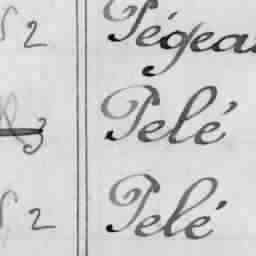 2 Pégea
3 Pelé
2 Pelé